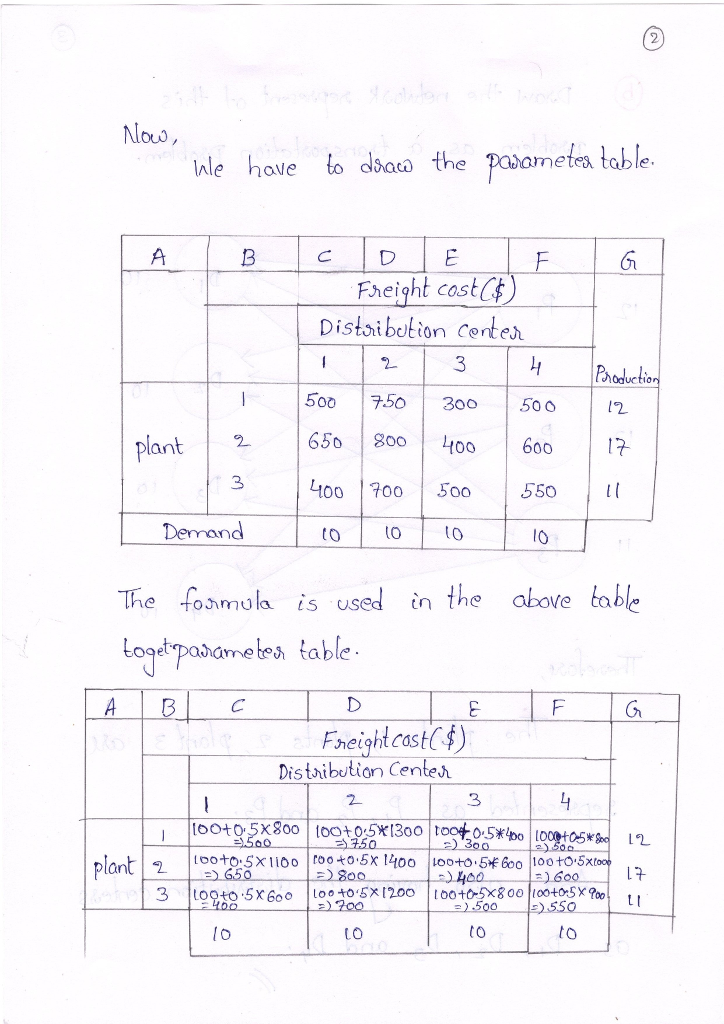 2
Now,
We have to draw the parameter table.
A B C D E F G
Freight cost($)
Distribution Center
1 2 3 4 Production
1 500 750 300 500 12
plant 2 650 800 400 600 17
3 400 700 500 550 11
Demand 10 10 10 10
The formula is used in the above table
toget parameter table.
A B C D E F G
Freight cost($)
Distribution Center
1 2 3 4
1 100+0.5×800 100+0.5×1300 100+0.5*400 100+0.5*800 12
=)500 =)750 =)300 =)500
plant 2 100+0.5×1100 100+0.5×1400 100+0.5*600 100+0.5×1000 17
=)650 =)800 =)400 =)600
3 100+0.5×600 100+0.5×1200 100+0.5×800 100+0.5×900 11
=400 =)700 =)500 =)550
10 10 10 10